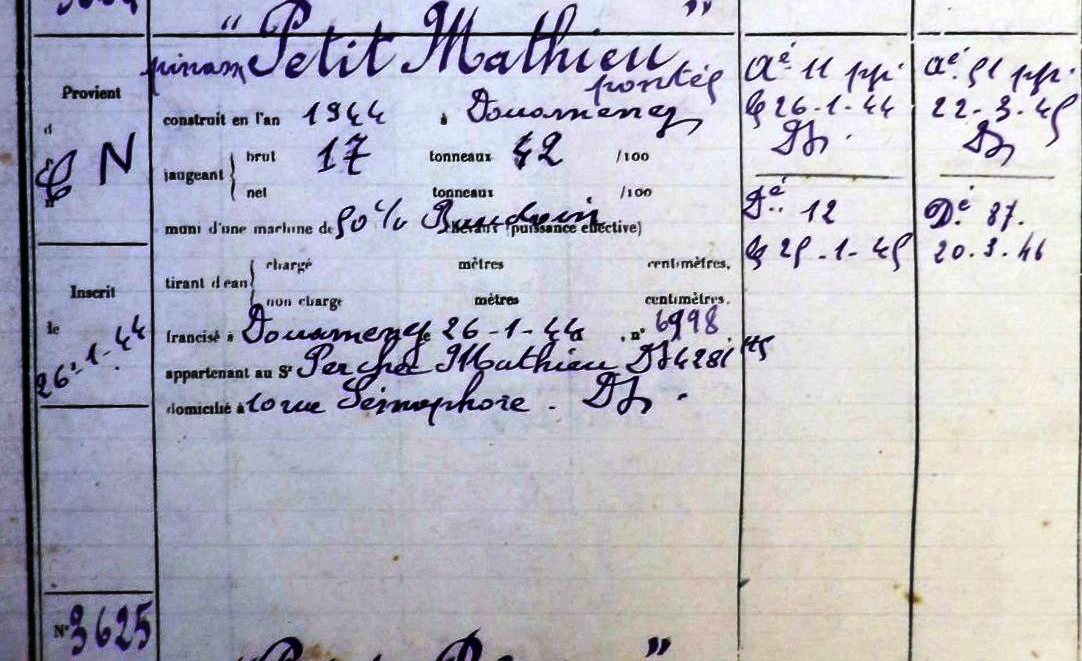 " Petit Mathieu "
pontée
Provient
d
C N
construit en l'an 1944 à Douarnenez
jaugeant { brut 17 tonneaux 42 /100
net tonneaux /100
muni d'une machine de 50 c/v Baudouin (puissance effective)
tirant d'eau { chargé mètres centimètres.
non chargé mètres centimètres.
francisé à Douarnenez le 26-1-44 , n° 6998
appartenant au Sr Mathieu DZ 4281
domicilié à 10 rue Sémaphore . DZ .
Inscrit
le
26-1-44
N° 3625
Aé 11 ppi
le 26-1-44
DZ .
Dé 12
le 25-1-45
Aé 51 ppi.
22-3-45
DZ
Dé 87.
20.3.46
"